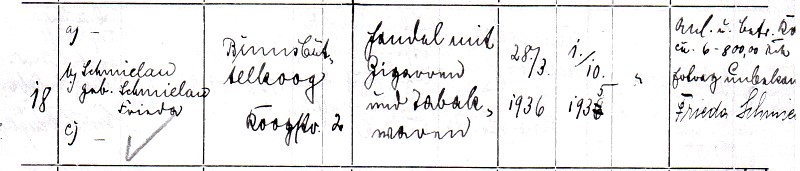 18
a) -
b) Schmielau
geb. Schmielau
Frieda
c) -
Brunsbüt-
telkoog
Koogstr. 2
Handel mit
Zigarren
und Tabak-
waren
28./3.
1936
1./
10.
1935
Anl. u. betr. Ka
ca. 6-800,00 RM
Ertrag unbekan
Frieda Schmie